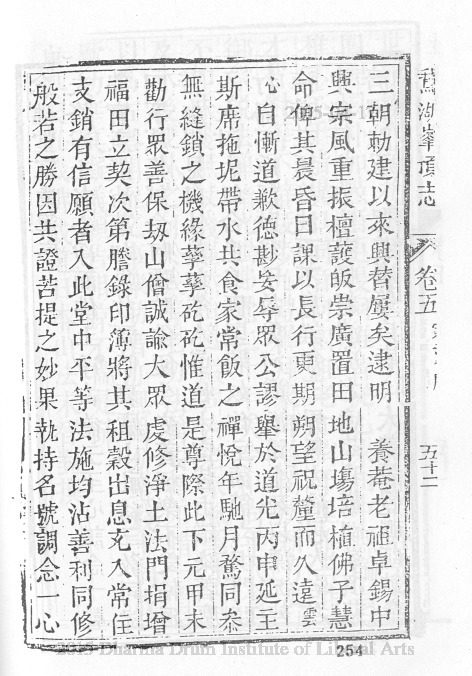 三朝勅建以來興替屢矣逮明　養菴老祖卓錫中
興宗風重振檀護皈崇廣置田地山塲培植佛子慧
命俾其晨昏日課以長行更期朔望祝釐而久遠雲
心自慚道歉德尠妄辱眾公謬舉於道光丙申延主
斯席拖坭帶水共食家常飯之禪悅年馳月騖同叅
無縫鎖之機緣孳孳矻矻惟道是尊際此下元甲未
勸行眾善保刼山僧誠諭大眾虔修淨土法門捐增
福田立契次第謄錄印簿將其租穀出息充入常住
支銷有信願者入此堂中平等法施均沾善利同修
般若之勝因共證菩提之妙果執持名號調念一心
鵞湖峯頂志
卷五
五十二
254
Dharma Drum Institute of Liberal Arts